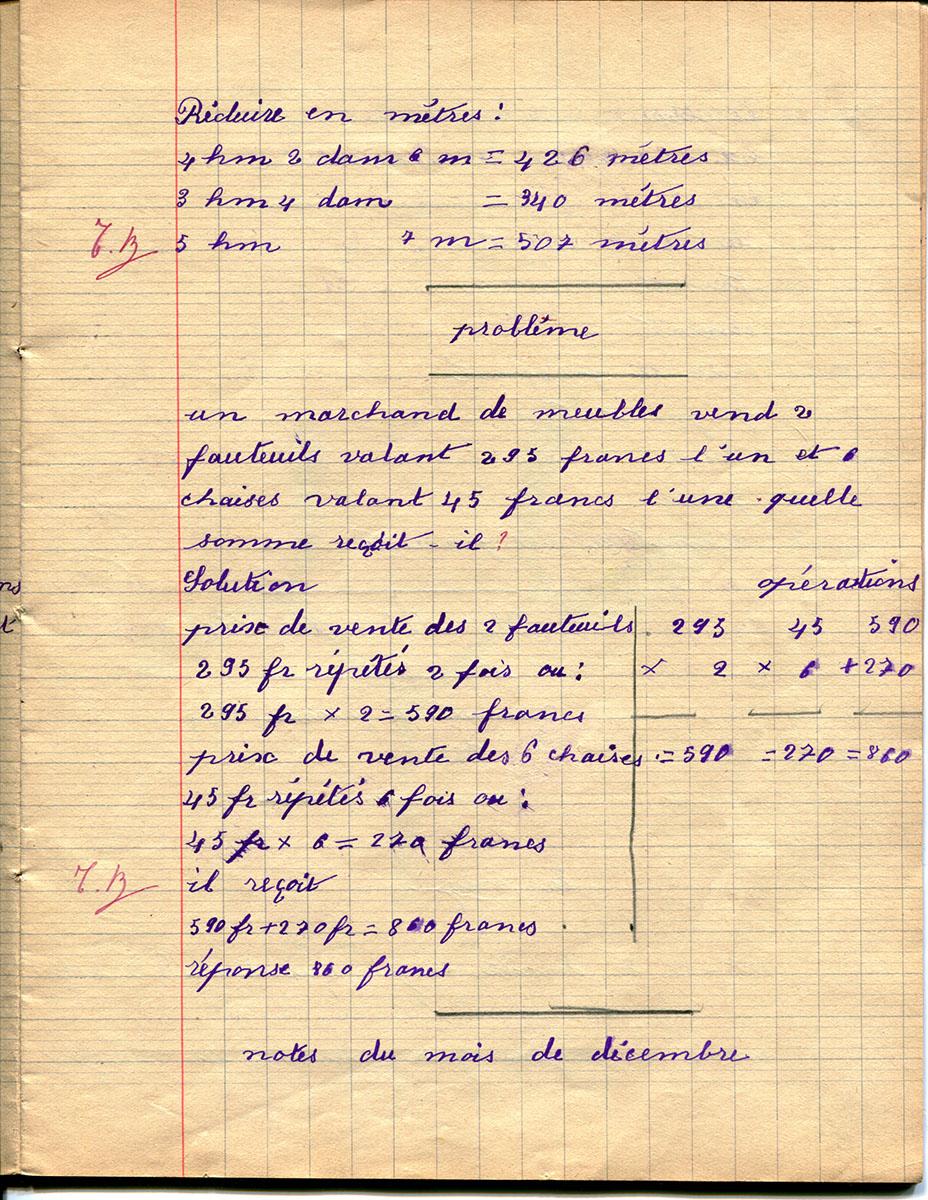 Réduire en mètres :
4 hm 2 dam 6 m = 426 mètres
3 hm 4 dam = 340 mètres
T.B 5 hm 7 m = 507 mètres
problème
un marchand de meubles vend 2
fauteuils valant 295 francs l'un et 6
chaises valant 45 francs l'une . quelle
somme reçoit-il ?
Solution opérations
prix de vente des 2 fauteuils 295 45 590
295 fr répétés 2 fois ou : × 2 × 6 + 270
295 fr × 2 = 590 francs
prix de vente des 6 chaises = 590 = 270 = 860
45 fr répétés 6 fois ou :
45 fr × 6 = 270 francs
T.B il reçoit
590 fr + 270 fr = 860 francs
réponse 860 francs
notes du mois de décembre